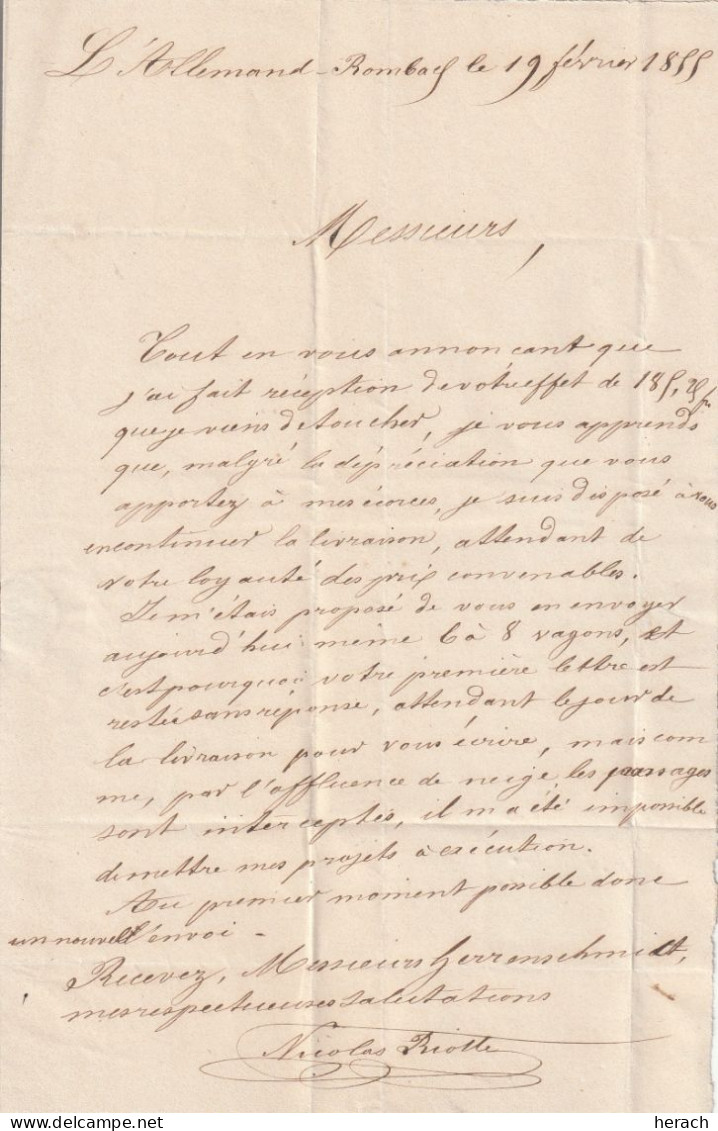 L'Allemand-Rombach le 19 février 1855
Messieurs,
Tout en vous annonçant que
j'ai fait réception de votre effet de 185,25 fr
que je viens de toucher, je vous apprends
que, malgré la dépréciation que vous
apportez à mes écorces, je suis disposé à vous
en continuer la livraison, attendant de
votre loyauté des prix convenables.
Je m'étais proposé de vous en envoyer
aujourd'hui même 6 à 8 vagons, et
c'est pourquoi votre première lettre est
restée sans réponse, attendant le jour de
la livraison pour vous écrire, mais com
me, par l'affluence de neige les passages
sont interceptés, il m'a été impossible
de mettre mes projets à exécution.
Au premier moment possible donc
un nouvel envoi -
Recevez, Messieurs Herrenschmidt,
mes respectueuses salutations
Nicolas Riotte
herach